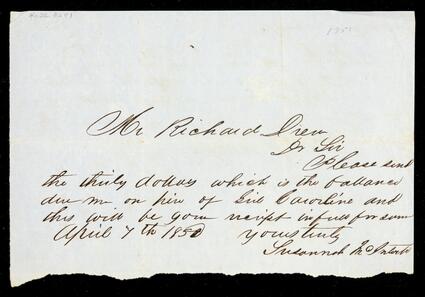 1851
Mr Richard Drew
Dr Sir
Please send
the thirty dollars which is the ballance
due me on hire of Girl Caroline and
this will be your recipt in full for same
April 7th 1851 yours truly
Susannah McIntosh